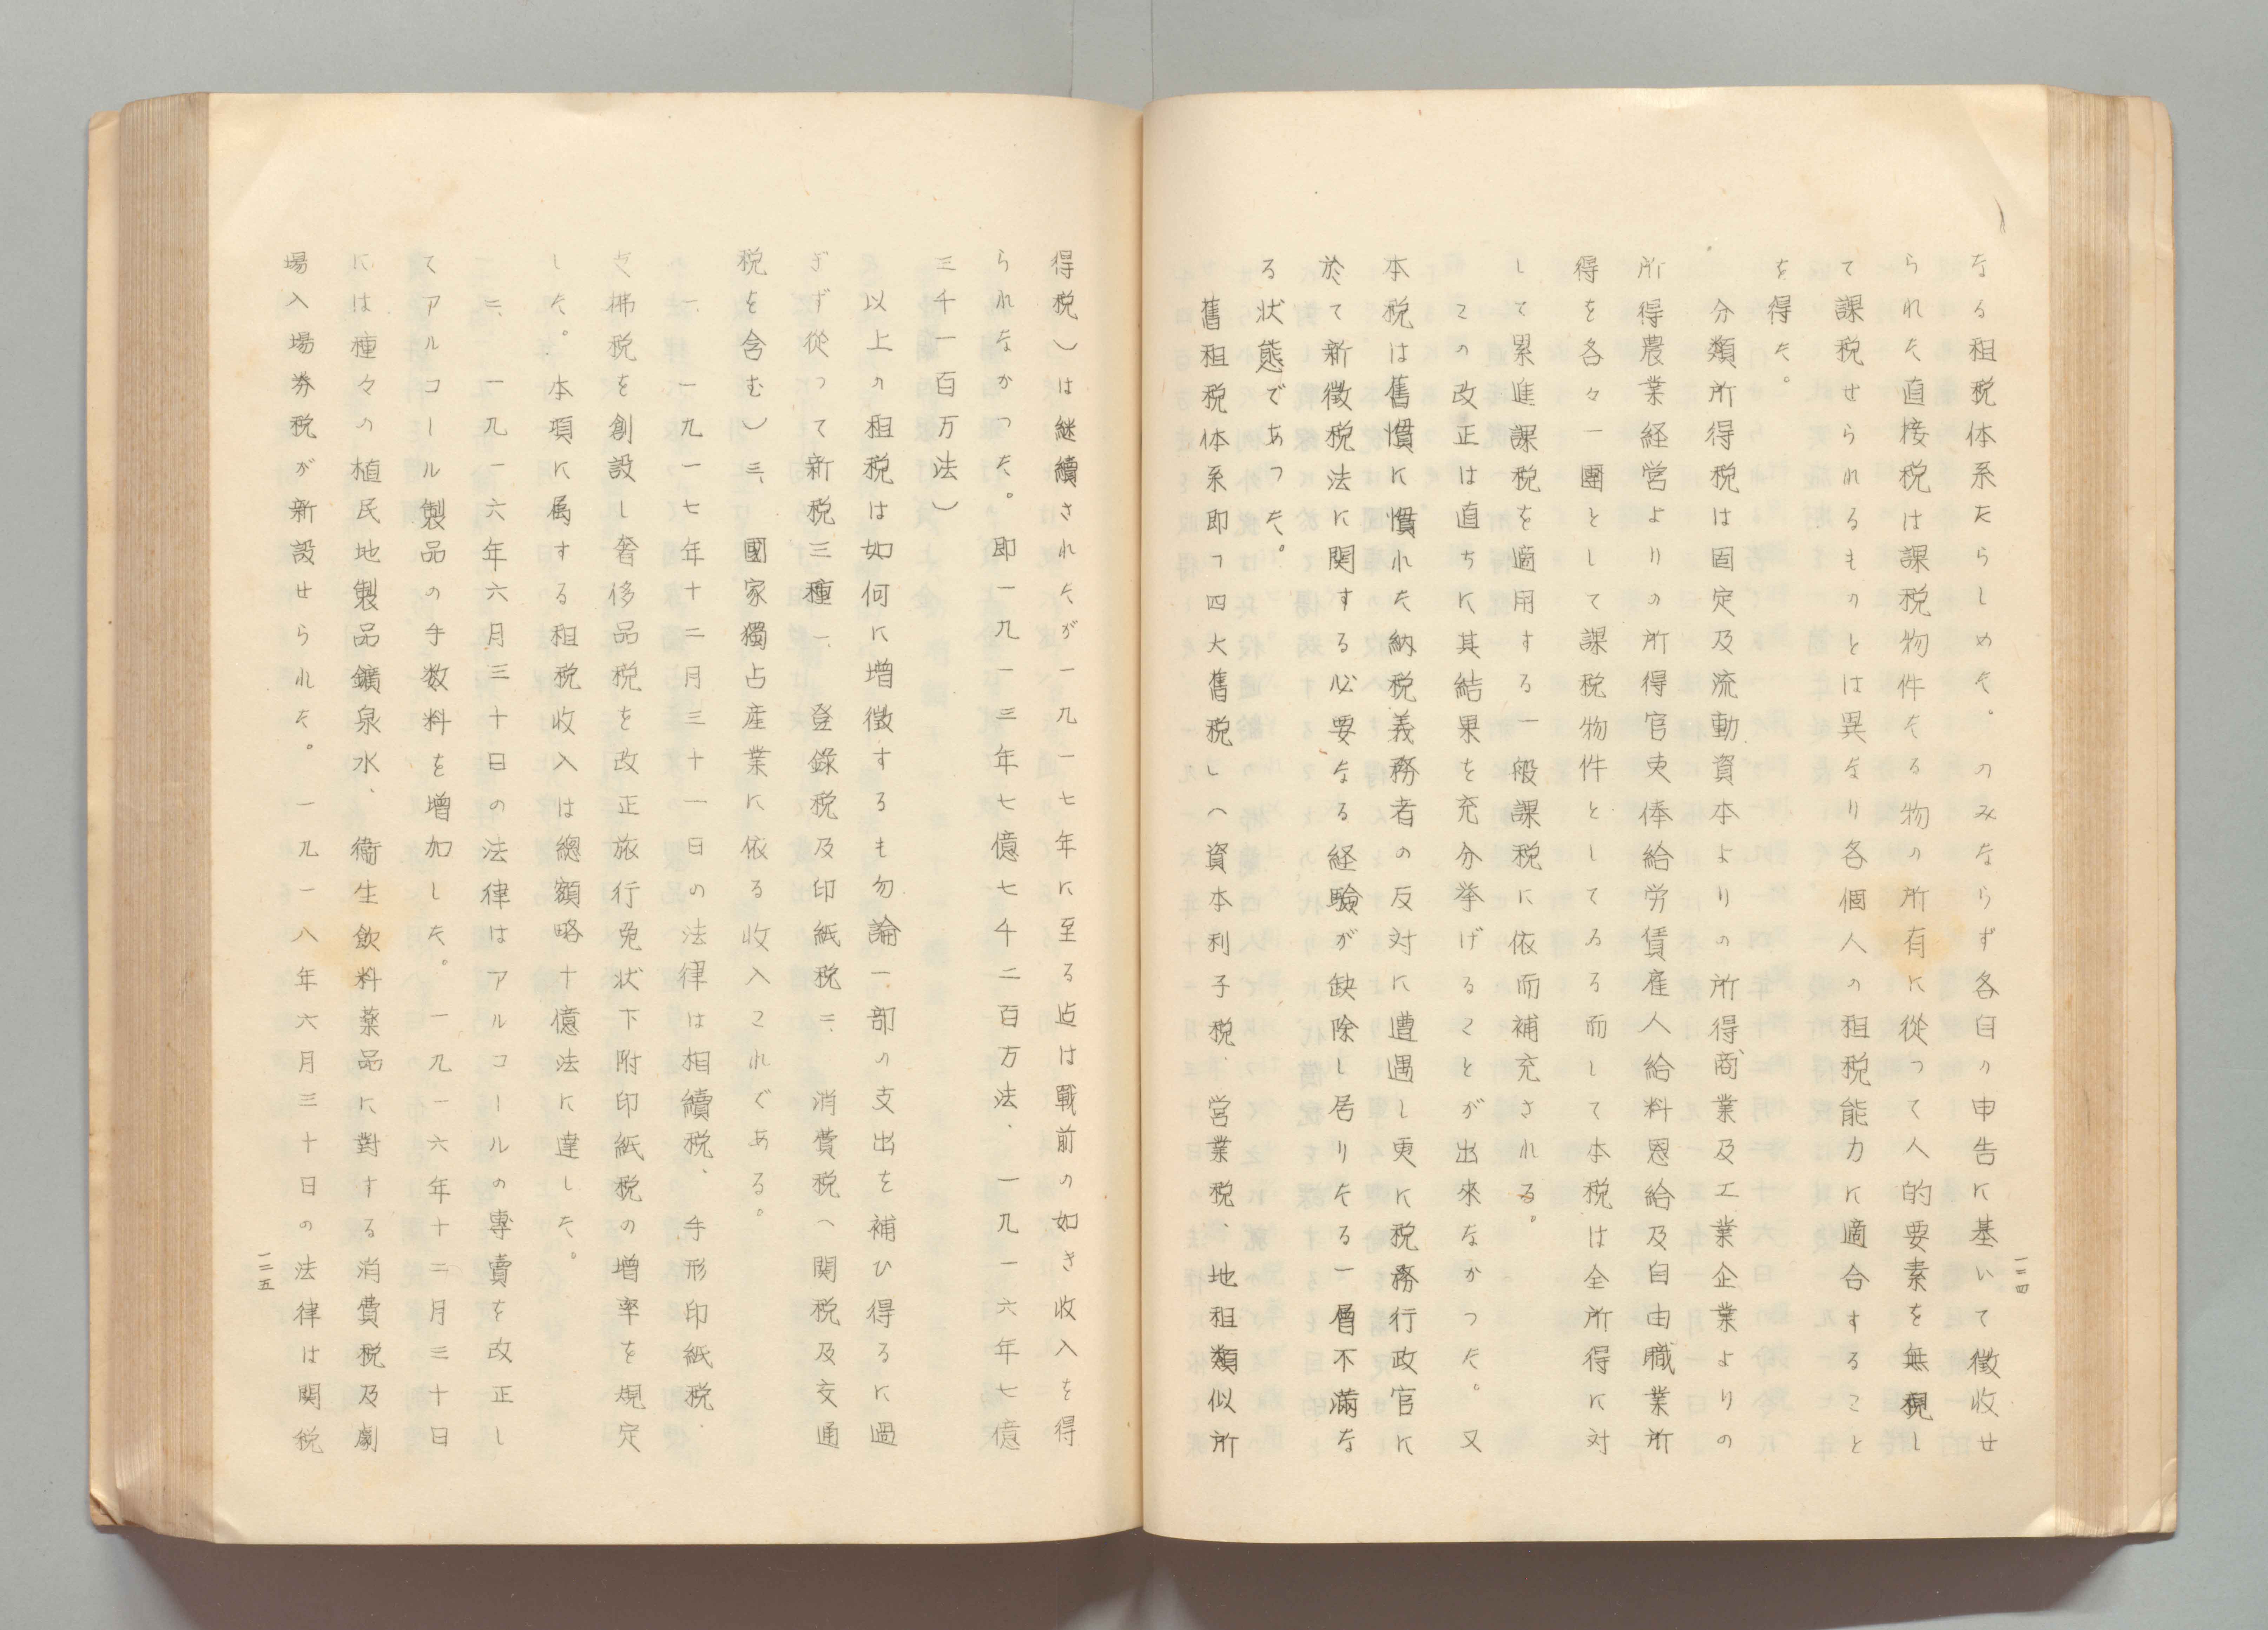 なる租税体系たらしめた。のみならず各自の申告に基いて徴収せ
られた直接税は課税物件たる物の所有に從つて人的要素を無視し
て課税せられるものとは異なり各個人の租税能力に適合すること
を得た。
分類所得税は固定及流動資本よりの所得、商業及工業企業よりの
所得農業経営よりの所得官吏俸給労賃雇人給料恩給及自由職業所
得を各々一團として課税物件としてゐる而して本税は全所得に対
して累進課税を適用する一般課税に依而補充される。
この改正は直ちに其結果を充分挙げることが出來なかつた。又
本税は舊慣に慣れた納税義務者の反対に遭遇し更に税務行政官に
於て新徴税法に関する必要なる経驗が缺除し居りたる一層不滿な
る状態であつた。
舊租税体系即「四大舊税」(資本利子税、営業税、地租類似所
一二四
得税)は継續されたが一九一七年に至る迠は戰前の如き收入を得
られなかつた。即一九一三年七億七千二百万法、一九一六年七億
三千一百万法)
以上の租税は如何に増徴するも勿論一部の支出を補ひ得るに過
ぎず從つて新税三種一、登錄税及印紙税二、消費税(関税及交通
税を含む)三、國家獨占産業に依る收入これぐある。
一、一九一七年十二月三十一日の法律は相續税、手形印紙税、
支拂税を創設し奢侈品税を改正旅行免状下附印紙税の増率を規定
した。本項に属する租税收入は總額略十億法に達した。
二、一九一六年六月三十日の法律はアルコールの專賣を改正し
てアルコール製品の手数料を増加した。一九一六年十二月三十日
には種々の植民地製品鑛泉水、衞生飲料薬品に對する消費税及劇
場入場券税が新設せられた。一九一八年六月三十日の法律は関税
一二五